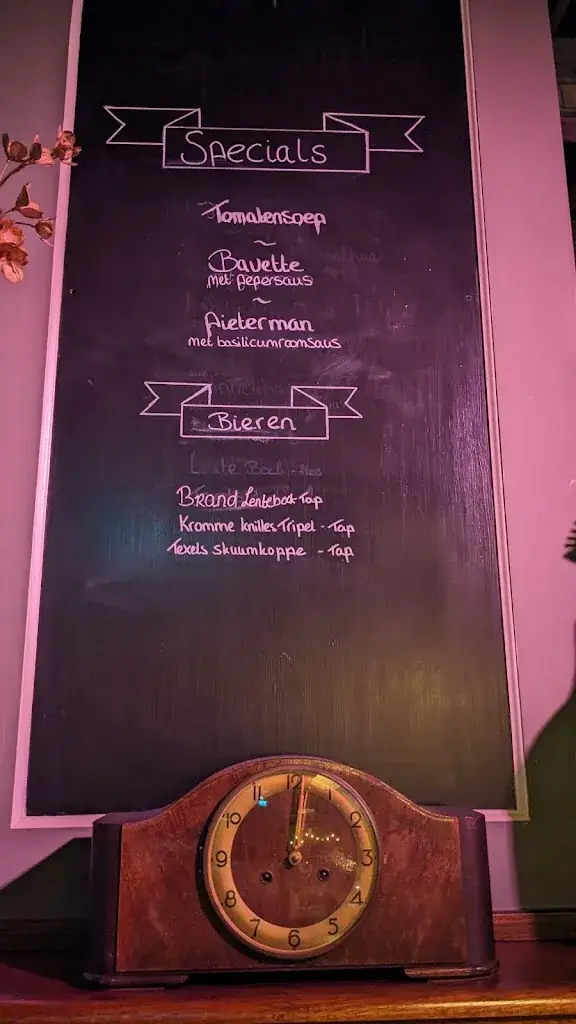 Specials
Tomatensoep
~
Bavette
met pepersaus
~
Pieterman
met basilicumroomsaus
Bieren
Brand Lentebock Tap
Kromme knilles Tripel - Tap
Texels skuumkoppe - Tap
12
1
2
3
4
5
6
7
8
9
10
11